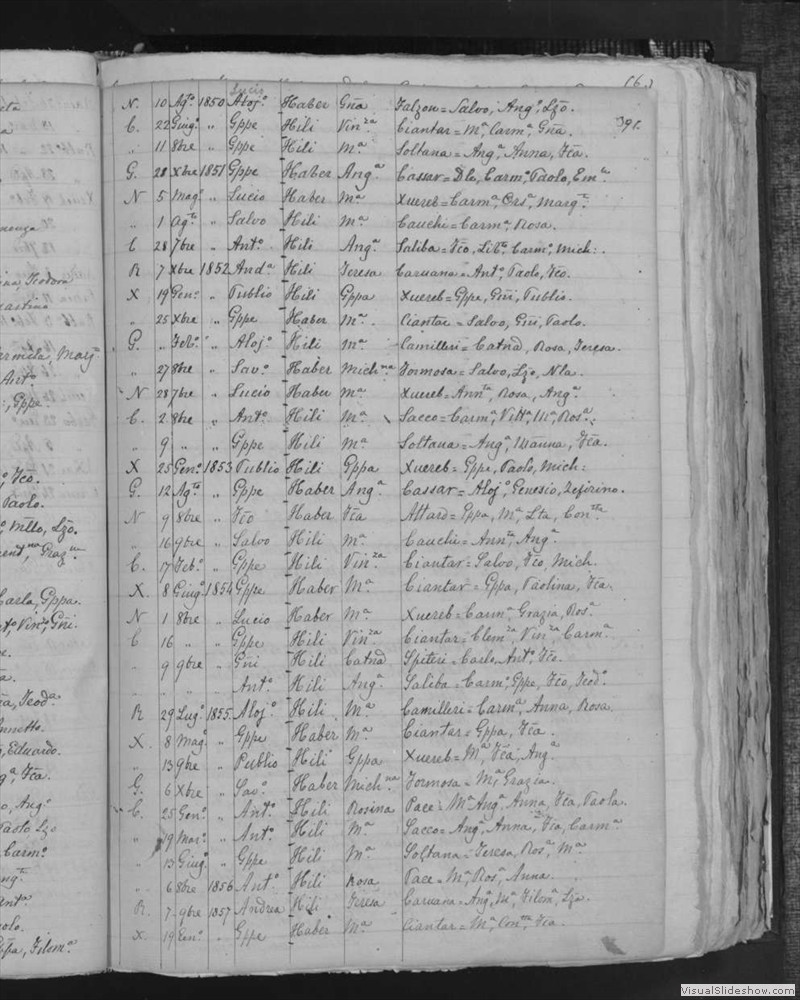 (6.)
Lucio
N. 10 Agto 1850 Alojo Haber Gña Falzon = Salvo, Ango, Lzo.
C. 22 Giugo „ Gppe Hili Vinza Ciantar = Ma, Carma, Gña. 391.
„ 11 8bre „ Gppe Hili Ma Soltana = Anga, Anna, Fca.
G. 28 Xbre 1851 Gppe Haber Anga Cassar = Dle, Carmo, Paolo, Ema
N 5 Mago „ Lucio Haber Ma Xuereb = Carma, Orsa, Margta
„ 1 Agto „ Salvo Hili Ma Cauchi = Carma, Rosa.
C 28 7bre „ Anto Hili Anga Saliba = Fco, Libta, Carmo, Mich:
R 7 Xbre 1852 Anda Hili Teresa Caruana = Anto, Paolo, Fco.
X 19 Geno „ Publio Hili Gppa Xuereb = Gppe, Gñi, Publio.
„ 25 Xbre „ Gppe Haber Ma Ciantar = Salvo, Gñi, Paolo.
G. „ Febo „ Alojo Hili Ma Camilleri = Catna, Rosa, Teresa.
„ 27 8bre „ Savo Haber Michna Formosa = Salvo, Lzo, Nla.
N 28 7bre „ Lucio Haber Ma Xuereb = Annta, Rosa, Anga.
C. 2 8bre „ Anto Hili Ma Sacco = Carma, Vitta, Ma, Rosa.
„ 9 „ „ Gppe Hili Ma Soltana = Anga, Manna, Fca.
X 25 Geno 1853 Publio Hili Gppa Xuereb = Gppe, Paolo, Mich:
G. 12 Agto „ Gppe Haber Anga Cassar = Alojo, Genesio, Zefirino.
N 9 8bre „ Fco Haber Fca Attard = Gppa, Ma, Lta, Contta
„ 16 9bre „ Salvo Hili Ma Cauchi = Annta, Anga.
C. 17 Febo „ Gppe Hili Vinza Ciantar = Salvo, Fco, Mich.
X. 8 Giugo 1854 Gppe Haber Ma Ciantar = Gppa, Paolina, Fca.
N 1 8bre „ Lucio Haber Ma Xuereb = Carma, Grazia, Rosa
C 16 „ „ Gppe Hili Vinza Ciantar = Clemza, Vinza, Carma
„ 9 9bre „ Gñi Hili Catna Spiteri = Carlo, Anto, Fco.
„ „ „ „ Anto Hili Anga Saliba = Carmo, Gppe, Fco, Teodo.
R 29 Lugo 1855 Alojo Hili Ma Camilleri = Carma, Anna, Rosa
X. 8 Mago „ Gppe Haber Ma Ciantar = Gppa, Fca.
„ 13 9bre „ Publio Hili Gppa Xuereb = Ma, Fca, Anga
G. 6 Xbre „ Savo Haber Michna Formosa = Ma, Grazia.
C. 25 Geno „ Anto Hili Rosina Pace = Ma Anga, Anna, Fca, Paola.
„ 19 Maro „ Anto Hili Ma Sacco = Anga, Anna, Fca, Carma
„ 13 Giugo „ Gppe Hili Ma Soltana = Teresa, Rosa, Ma
„ 6 8bre 1856 Anto Hili Rosa Pace = Ma, Rosa, Anna.
R. 7 9bre 1857 Andrea Hili Teresa Caruana = Anga, Ma, Filoma, Lza.
X. 19 Geno „ Gppe Haber Ma Ciantar = Ma, Conta, Fca.
VisualSlideshow.com